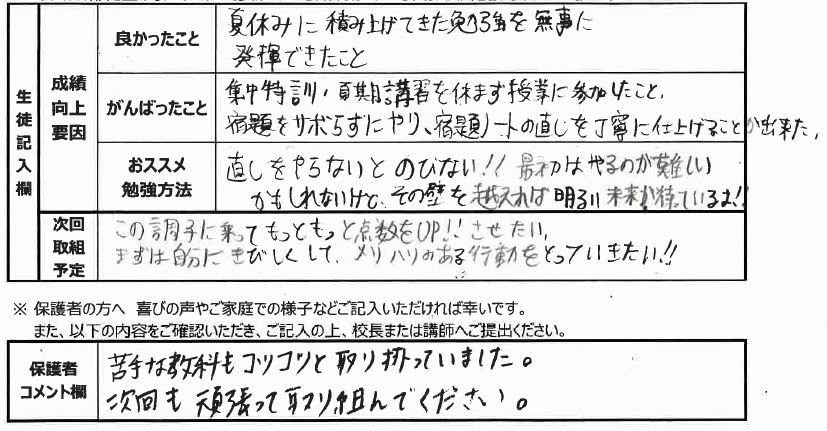 良かったこと
夏休みに積み上げてきた勉強を無事に
発揮できたこと
生徒記入欄
成績向上要因
がんばったこと
集中特訓・夏期講習を休まず授業に参加したこと、
宿題をサボらずにやり、宿題ノートの直しを丁寧に仕上げることが出来た。
おススメ
勉強方法
直しをやらないとのびない!! 最初はやるのが難しい
かもしれないけど、その壁を越えれば明るい未来が待っているよ!!
次回
取組
予定
この調子に乗ってもっともっと点数をUP!! させたい。
まずは自分にきびしくして、メリハリのある行動をとっていきたい!!
※ 保護者の方へ 喜びの声やご家庭での様子などご記入いただければ幸いです。
また、以下の内容をご確認いただき、ご記入の上、校長または講師へご提出ください。
保護者
コメント欄
苦手な教科もコツコツと取り掛っていました。
次回も頑張って取り組んでください。